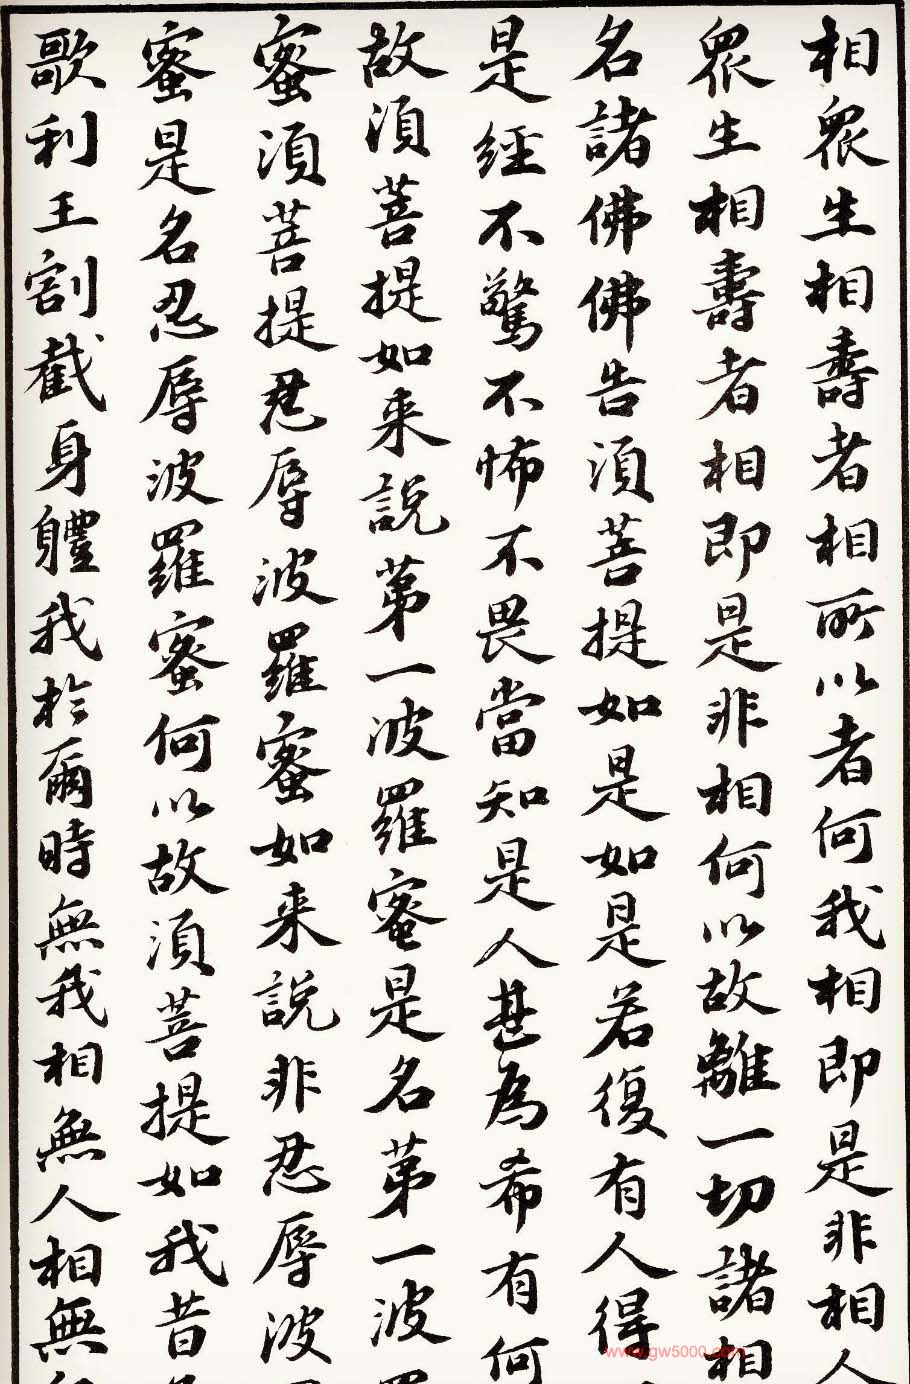 相眾生相壽者相所以者何我相即是非相人
眾生相壽者相即是非相何以故離一切諸相
名諸佛佛告須菩提如是如是若復有人得
是經不驚不怖不畏當知是人甚為希有何
故須菩提如来說第一波羅蜜是名第一波羅
蜜須菩提忍辱波羅蜜如来說非忍辱波羅
蜜是名忍辱波羅蜜何以故須菩提如我昔
歌利王割截身體我於爾時無我相無人相無
www.gw5000.com